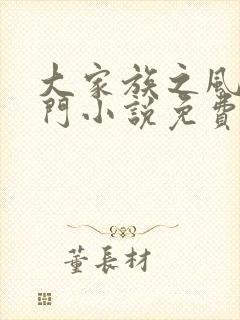 大家族之風
門小說免費
董長材